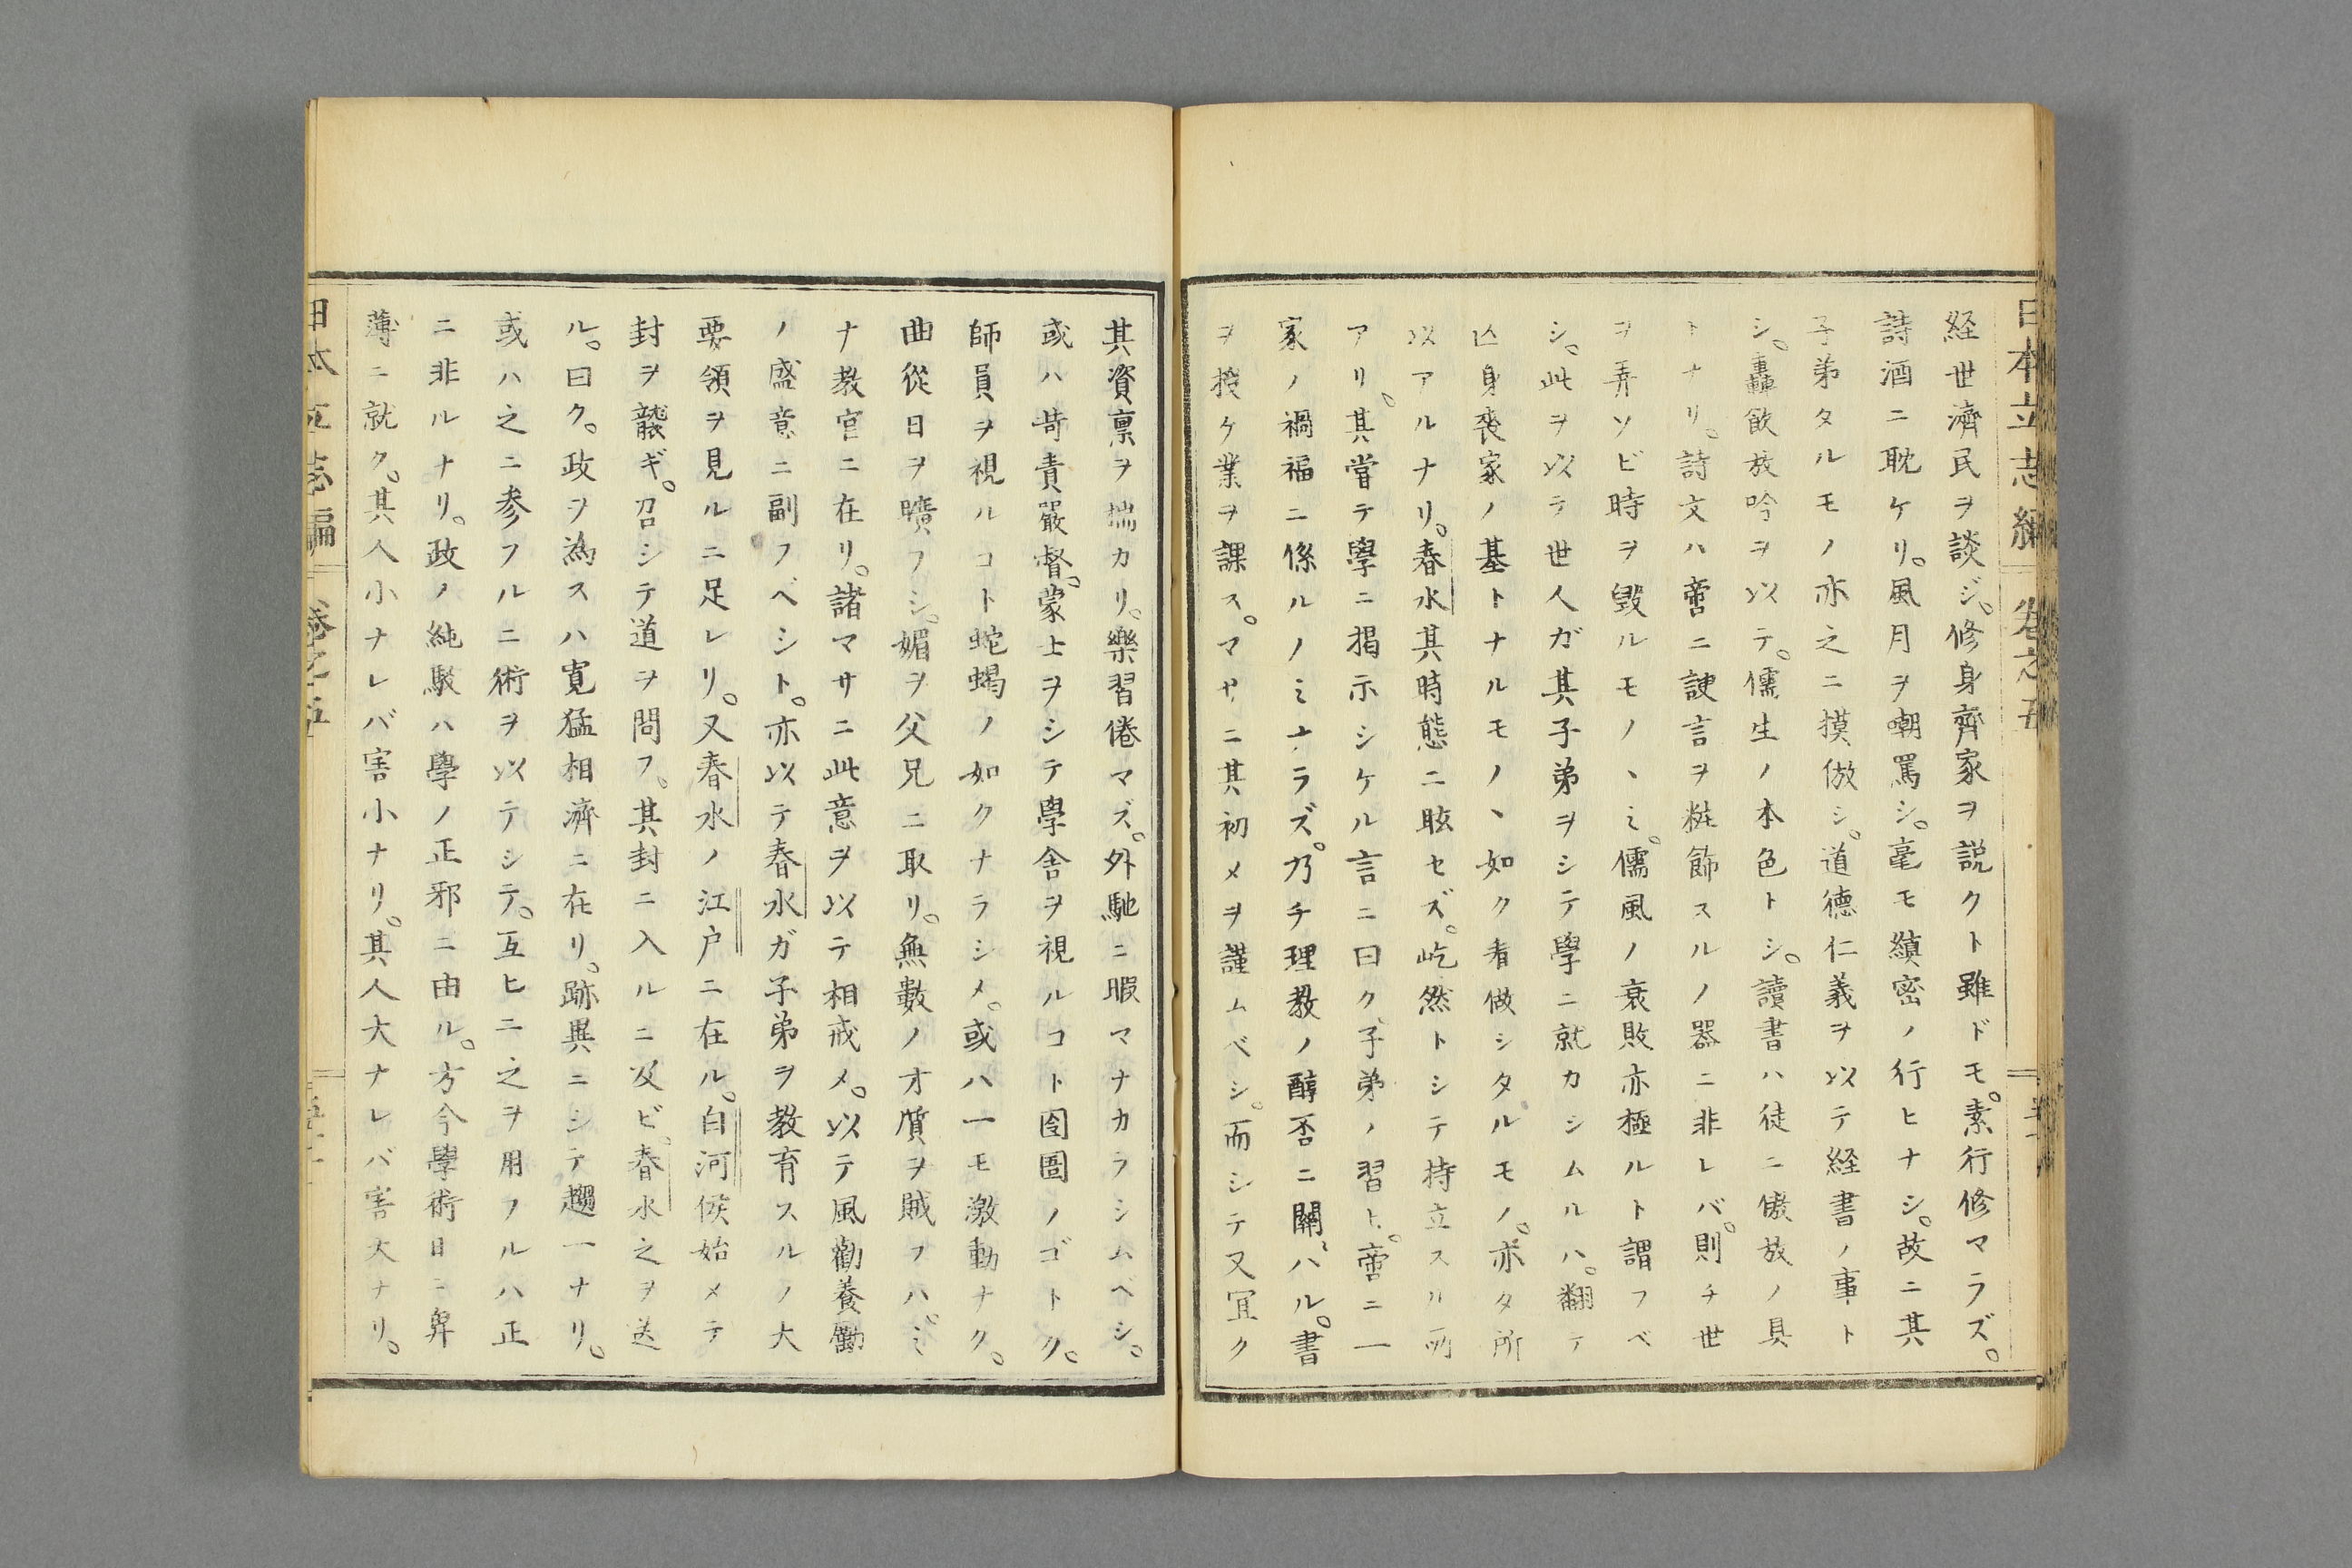 日本立志編 卷之五
経世濟民ヲ談ジ。修身齊家ヲ説クト雖ドモ。素行修マラズ。
詩酒ニ耽ケリ。風月ヲ嘲罵シ。毫モ縝密ノ行ヒナシ。故ニ其
子弟タルモノ亦之ニ摸倣シ。道德仁義ヲ以テ経書ノ事ト
シ。轟飲放吟ヲ以テ。儒生ノ本色トシ。讀書ハ徒ニ傲放ノ具
トナリ。詩文ハ啻ニ諛言ヲ粧飾スルノ器ニ非レバ。則チ世
ヲ弄ソビ時ヲ毀ルモノヽミ。儒風ノ衰敗亦極ルト謂フベ
シ。此ヲ以テ世人ガ其子弟ヲシテ學ニ就カシムルハ。翻テ
亾身喪家ノ基トナルモノヽ如ク看做シタルモノ。亦タ所
以アルナリ。春水其時態ニ眩セズ。屹然トシテ持立スル所
アリ。其嘗テ學ニ揭示シケル言ニ曰ク。子弟ノ習ヒ。啻ニ一
家ノ禍福ニ係ルノミナラズ。乃チ理教ノ醇否ニ關ハル。書
ヲ授ケ業ヲ課ス。マサニ其初メヲ謹ムベシ。而シテ又冝ク
其資禀ヲ揣カリ。樂習倦マズ。外馳ニ暇マナカラシムベシ。
或ハ苛責嚴督。蒙士ヲシテ學舍ヲ視ルコト囹圄ノゴトク。
師員ヲ視ルコト蛇蝎ノ如クナラシメ。或ハ一モ激動ナク。
曲從日ヲ曠フシ。媚ヲ父兄ニ取リ。無數ノ才質ヲ賊フハ。ミ
ナ教官ニ在リ。諸マサニ此意ヲ以テ相戒メ。以テ風勸養勵
ノ盛意ニ副フベシト。亦以テ春水ガ子弟ヲ教育スルノ大
要領ヲ見ルニ足レリ。又春水ノ江户ニ在ル。白河侯始メテ
封ヲ襲ギ。召シテ道ヲ問フ。其封ニ入ルニ及ビ。春水之ヲ送
ル。曰ク。政ヲ為スハ寛猛相濟ニ在リ。跡異ニシテ趣一ナリ。
或ハ之ニ参フルニ術ヲ以テシテ。互ヒニ之ヲ用フルハ正
ニ非ルナリ。政ノ純駁ハ學ノ正邪ニ由ル。方今學術日ニ卑
薄ニ就ク。其人小ナレバ害小ナリ。其人大ナレバ害大ナリ。
日本立志編 卷之五